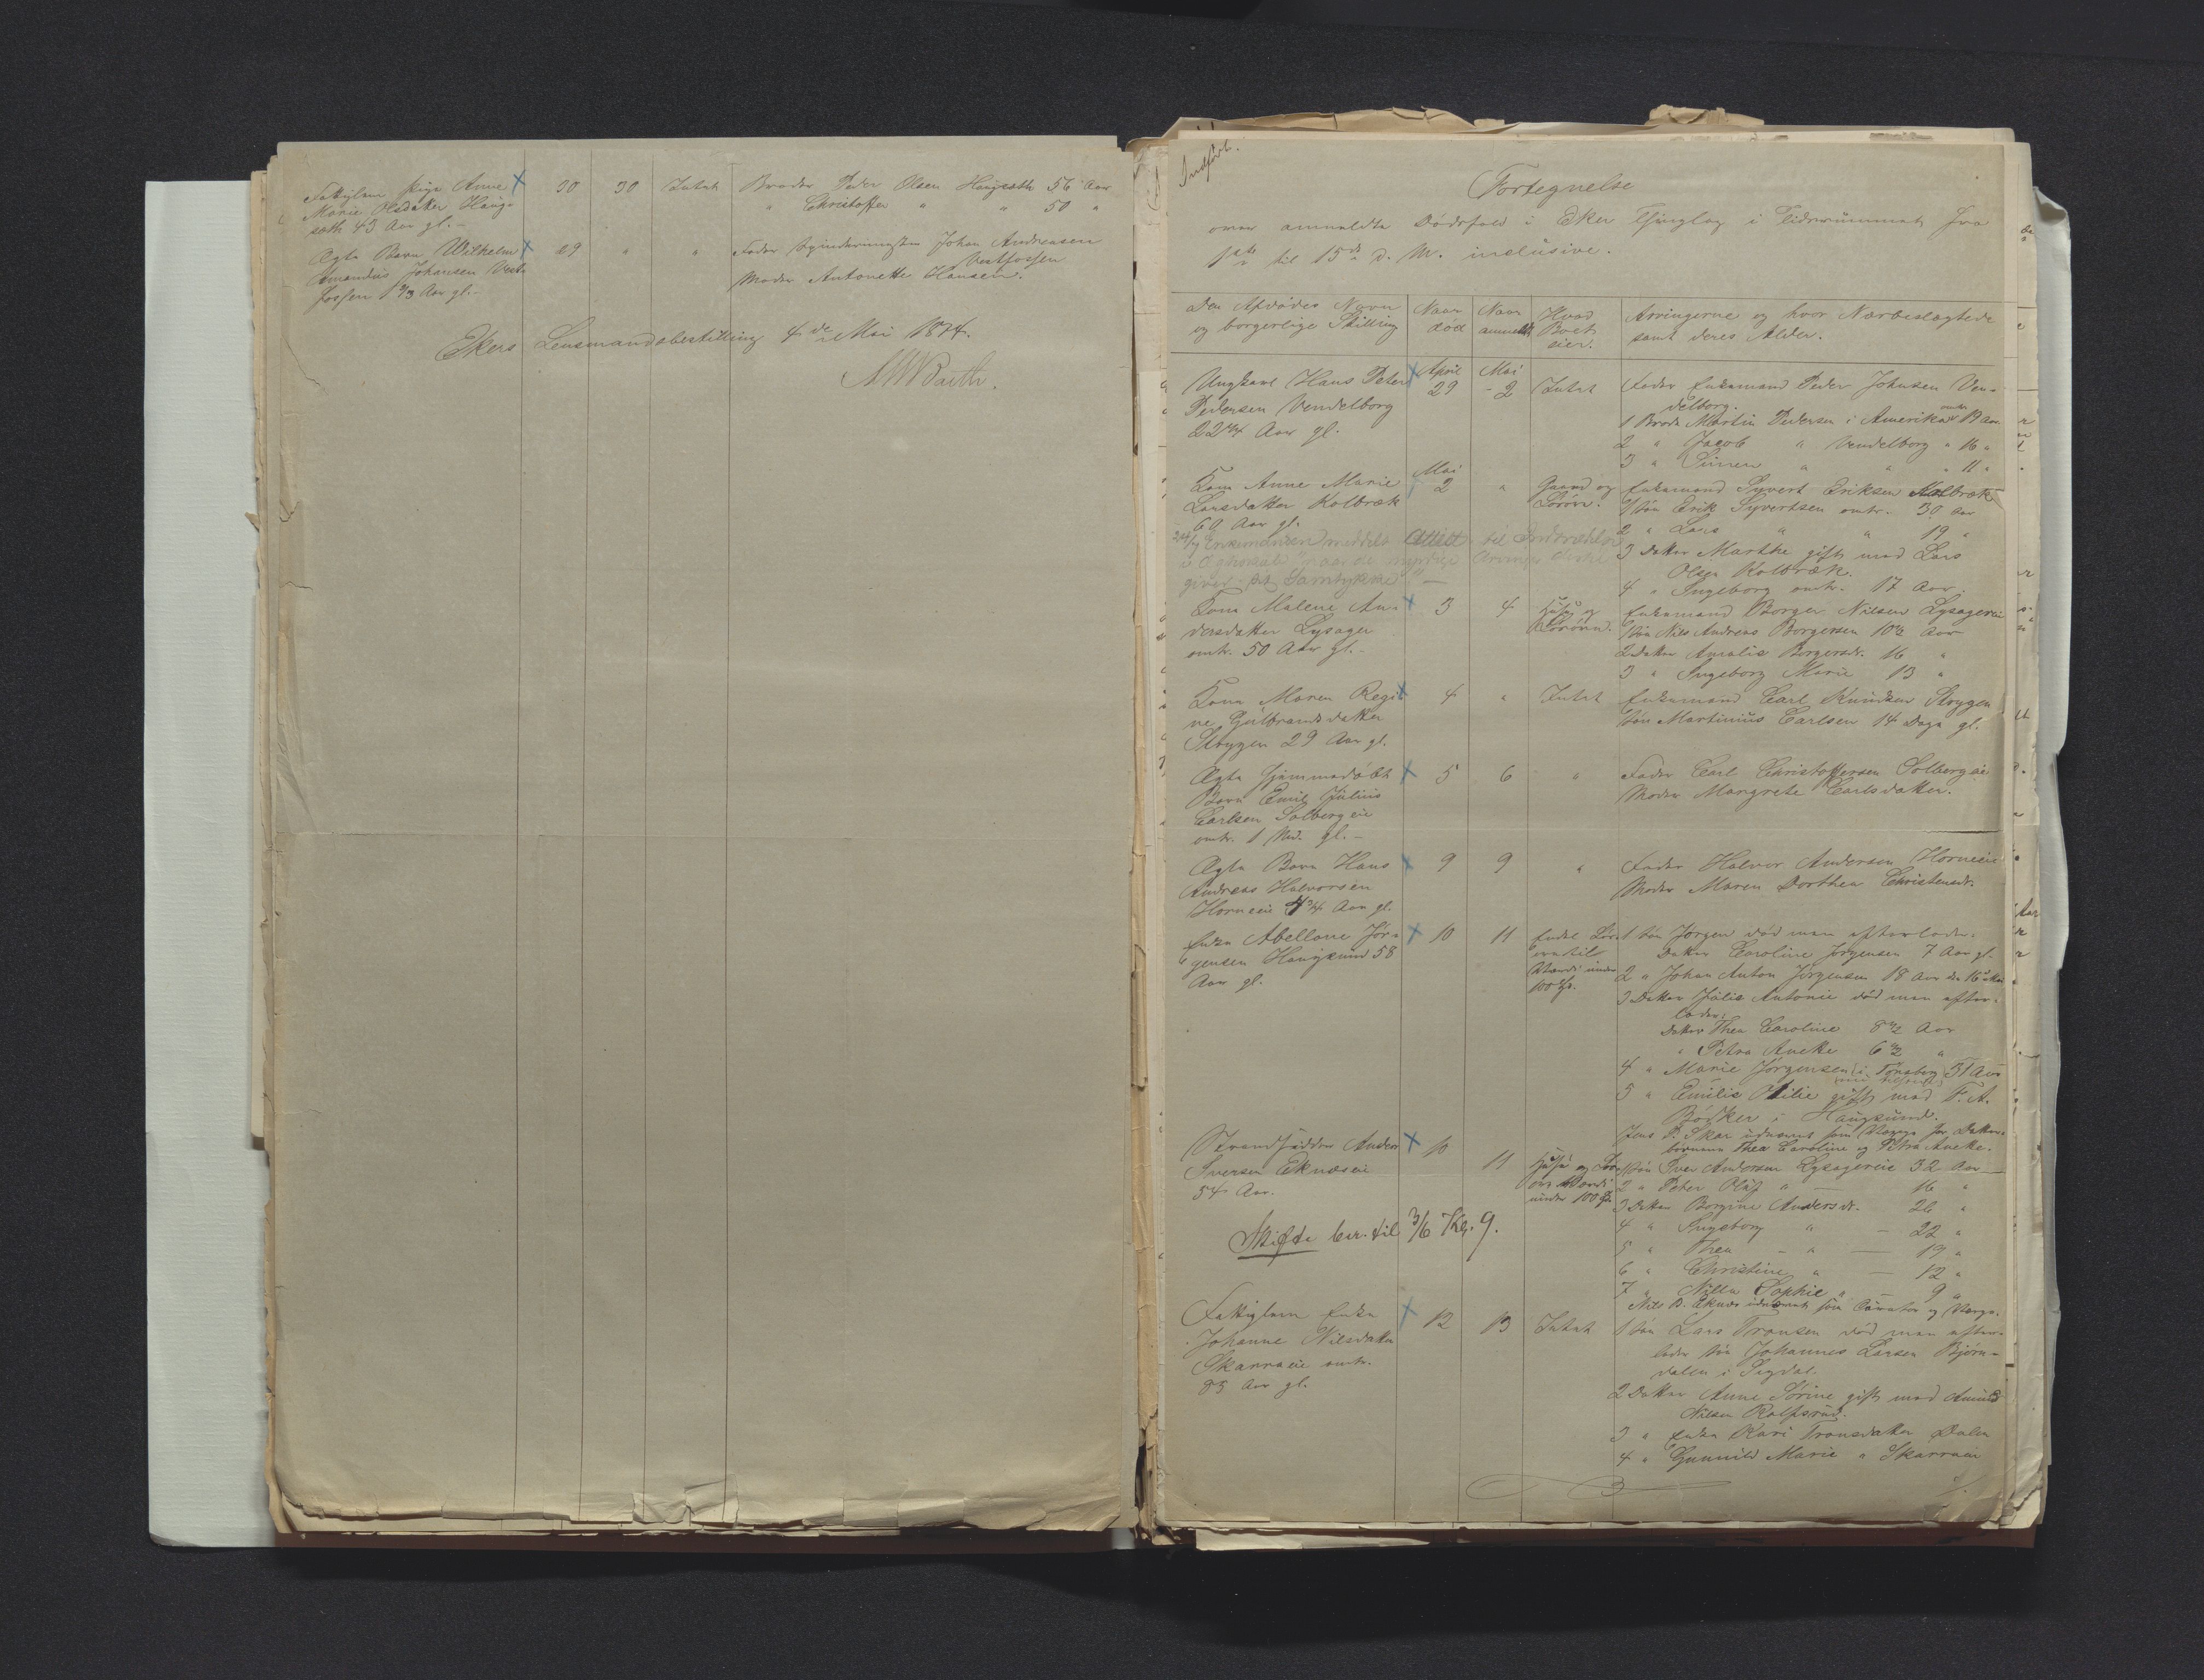 Fattiglem Pige Anne × 30 30 Intet Broder Peder Olsen Haugseth 56 Aar
Marie Olsdatter Haug- " Christoffer " " 50 "
seth 43 Aar gl. –
Ægte Barn Wilhelm × 29 " " Fader Spinderimester Johan Andreasen
Amandus Johansen Vest- Vestfossen
fossen 1 2/3 Aar gl. – Moder Antonette Hansen.
Ekers Lensmandsbestilling 4de Mai 1874.
Indført.
Fortegnelse
over anmeldte Dødsfald i Eker Thinglag i Tidsrummet fra
1ste til 15de d. M. inclusive.
Den Afdødes Navn Naar Naar Hvad Arvingerne og hvor Nærbeslægtede
og borgerlige Stilling død anmeldt Boet samt deres Alder.
eier.
Ungkarl Hans Peter × April Mai
Pedersen Vendelborg 29 – 2 Intet Fader Enkemand Peder Johnsen Ven-
22 3/4 Aar gl. delborg.
1 Broder Martin Pedersen i Amerika omtr. 19 Aar
2 " Jacob " Vendelborg " 16 "
3 " Simen " " " 11 "
Kone Anne Marie Mai
Larsdatter Kolbræk 2 " Gaard og Enkemand Syvert Eriksen Kolbræk
60 Aar gl. Løsøre. 1 Søn Erik Syvertsen omtr. 30 Aar
2 " Lars " " 19 "
24/7 Enkemanden meddelt Attest til
3 Datter Marthe gift med Lars
naar de myndige Arvinger
Olsen Kolbræk.
giver sit Samtykke." –
4 " Ingeborg omtr. 17 Aar.
Kone Malene An- × 3 4 Huse og Enkemand Borger Nilsen Lysagereie
dersdatter Lysager Løsøre. 1 Søn Nils Andreas Borgersen 10 1/2 Aar
omtr. 50 Aar gl. – 2 Datter Amalie Borgersdr. 16 "
3 " Ingeborg Marie 13 "
Kone Maren Regi- × 4 " Intet Enkemand Carl Knudsen Strygen
ne Gulbrandsdatter 1 Søn Martinius Carlsen 14 Dage gl.
Strygen 29 Aar gl.
Ægte hjemmedøbt × 5 6 " Fader Carl Christoffersen Solbergeie
Barn Emil Julius Moder Margrete Carlsdatter.
Carlsen Solbergeie
omtr. 1 Md. gl. –
Ægte Barn Hans × 9 9 " Fader Halvor Andersen Horneeie
Andreas Halvorsen Moder Maren Dorthea Christensdr.
Horneeie 4 3/4 Aar gl.
Enke Abellone Jør- × 10 11 Endel Løs- 1 Søn Jørgen død men efterlader:
gensen Haugsund 58 øre til Datter Caroline Jørgensen 7 Aar gl.
Aar gl. Værdi under 2 " Johan Anton Jørgensen 18 Aar den 16de Mai
100 Spd. 3 Datter Julie Antonie død men efter-
lader:
Datter Thea Caroline 8 1/2 Aar
" Petra Aneke 6 1/2 "
4 " Marie Jørgensen i Tønsberg 31 Aar
5 " Emilie Otilie gift med F. A.
Bødker i Haugsund.
Jens P. Skar udnævnt som Værge for Datter-
børnene Thea Caroline og Petra Aneke.
Strandsidder Anders × 10 11 Huse og Løs- 1 Søn Iver Andersen Lysagereie 32 Aar
Iversen Eknæseie øre Værdi 2 " Peter Oluf " – 16 "
54 Aar. under 100 Spd. 3 Datter Borgine Andersdr. 26 "
4 " Ingeborg " – 22 "
Skifte ber. til 3/6 Kl. 9.
5 " Thea – " – 19 "
6 " Christine " – 12 "
7 " Nilla Sophie " 9 "
Nils B. Eknæs udnævnt som Curator og Værge.
Fattiglem Enke × 12 13 Intet 1 Søn Lars Tronsen død men efter-
Johanne Nilsdatter lader Søn Johannes Larsen Bjørn-
Skarraeie omtr. dalen i Sigdal.
85 Aar gl. 2 Datter Anne Sørine gift med Amund
Nilsen Rolfsrud.
3 " Enke Kari Tronsdatter Dalen
4 " Gunnild Marie " Skarraeie